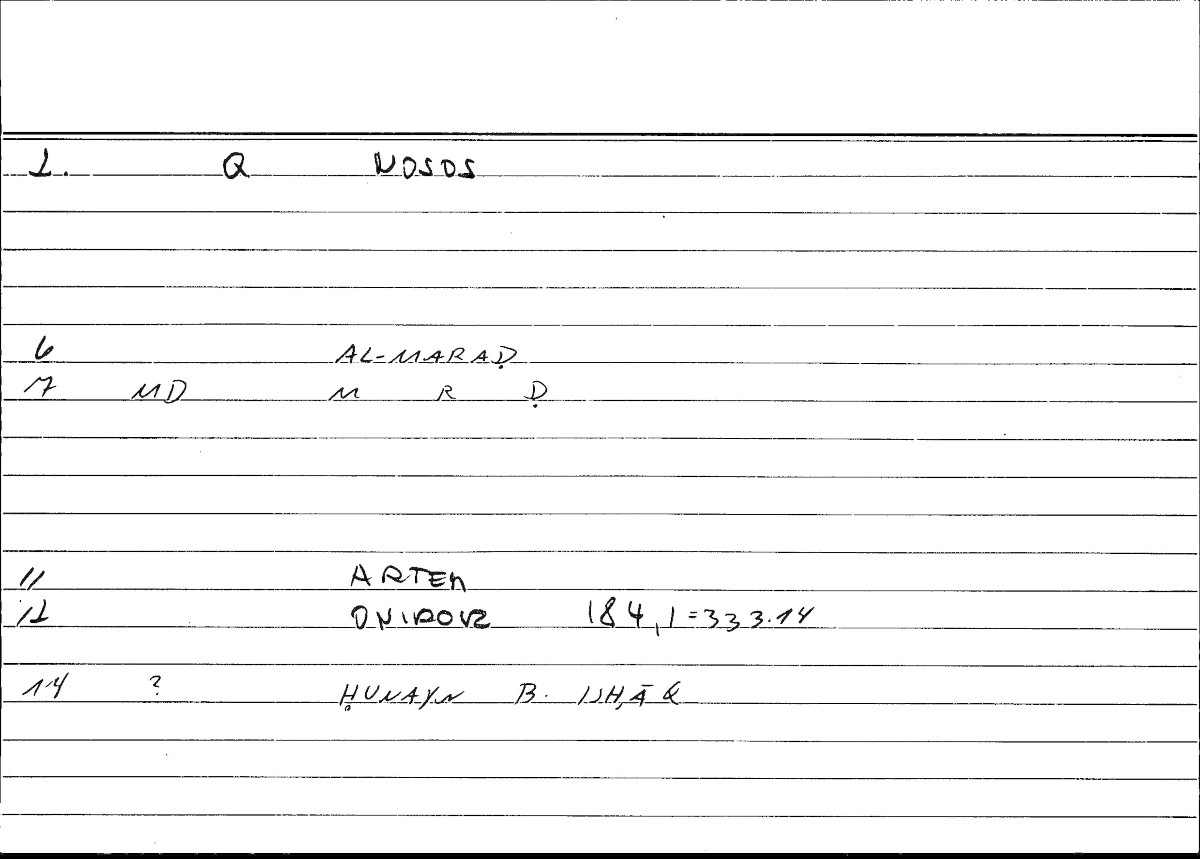 1. Q NOSOS
6 AL-MARAḌ
7 MD M R Ḍ
11 ARTEM
12 ONIROCR 184,1=333.14
14 ? ḤUNAYN B. ISḤĀQ